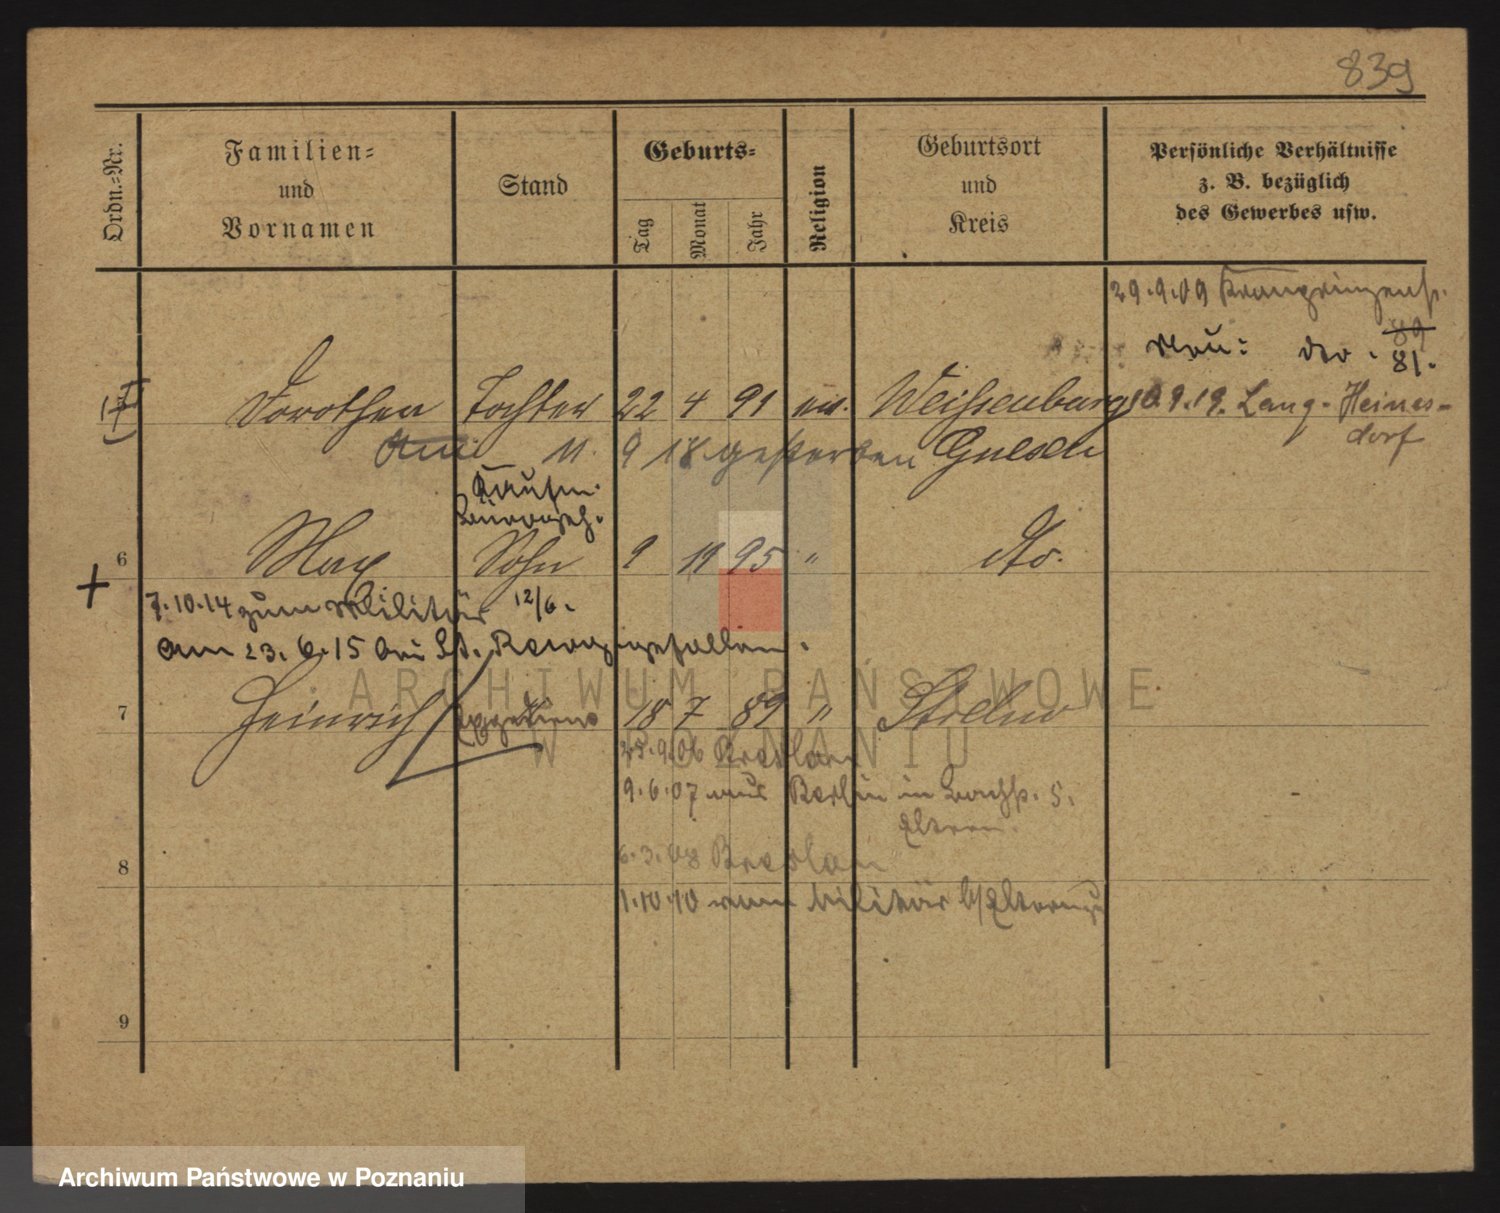 839
Ordn.-Nr.
Familien-
und
Vornamen
Stand
Geburts-
Tag
Monat
Jahr
Religion
Geburtsort
und
Kreis
Persönliche Verhältnisse
z. B. bezüglich
des Gewerbes usw.
29.9.09 Kronprinzenstr.
89
Neu: 81.
Dorothea Tochter 22 4 91 ev. Weißenburg 10.9.19. Lang-Heiners-
dorf
11. 9 18 gestorben Gnesen
Kaufm.
6 Max Sohn 9 11 95 " do.
7.10.14 zum Militär 12/6.
am 23.6.15 bei gefallen.
7 Heinrich 18 7 89 " Strelno
25.9.06 Breslau
9.6.07 aus Berlin in
Eltern.
8 6.3.08 Breslau
1.10.10 vom Militär
9
ARCHIWUM PAŃSTWOWE
W POZNANIU
Archiwum Państwowe w Poznaniu